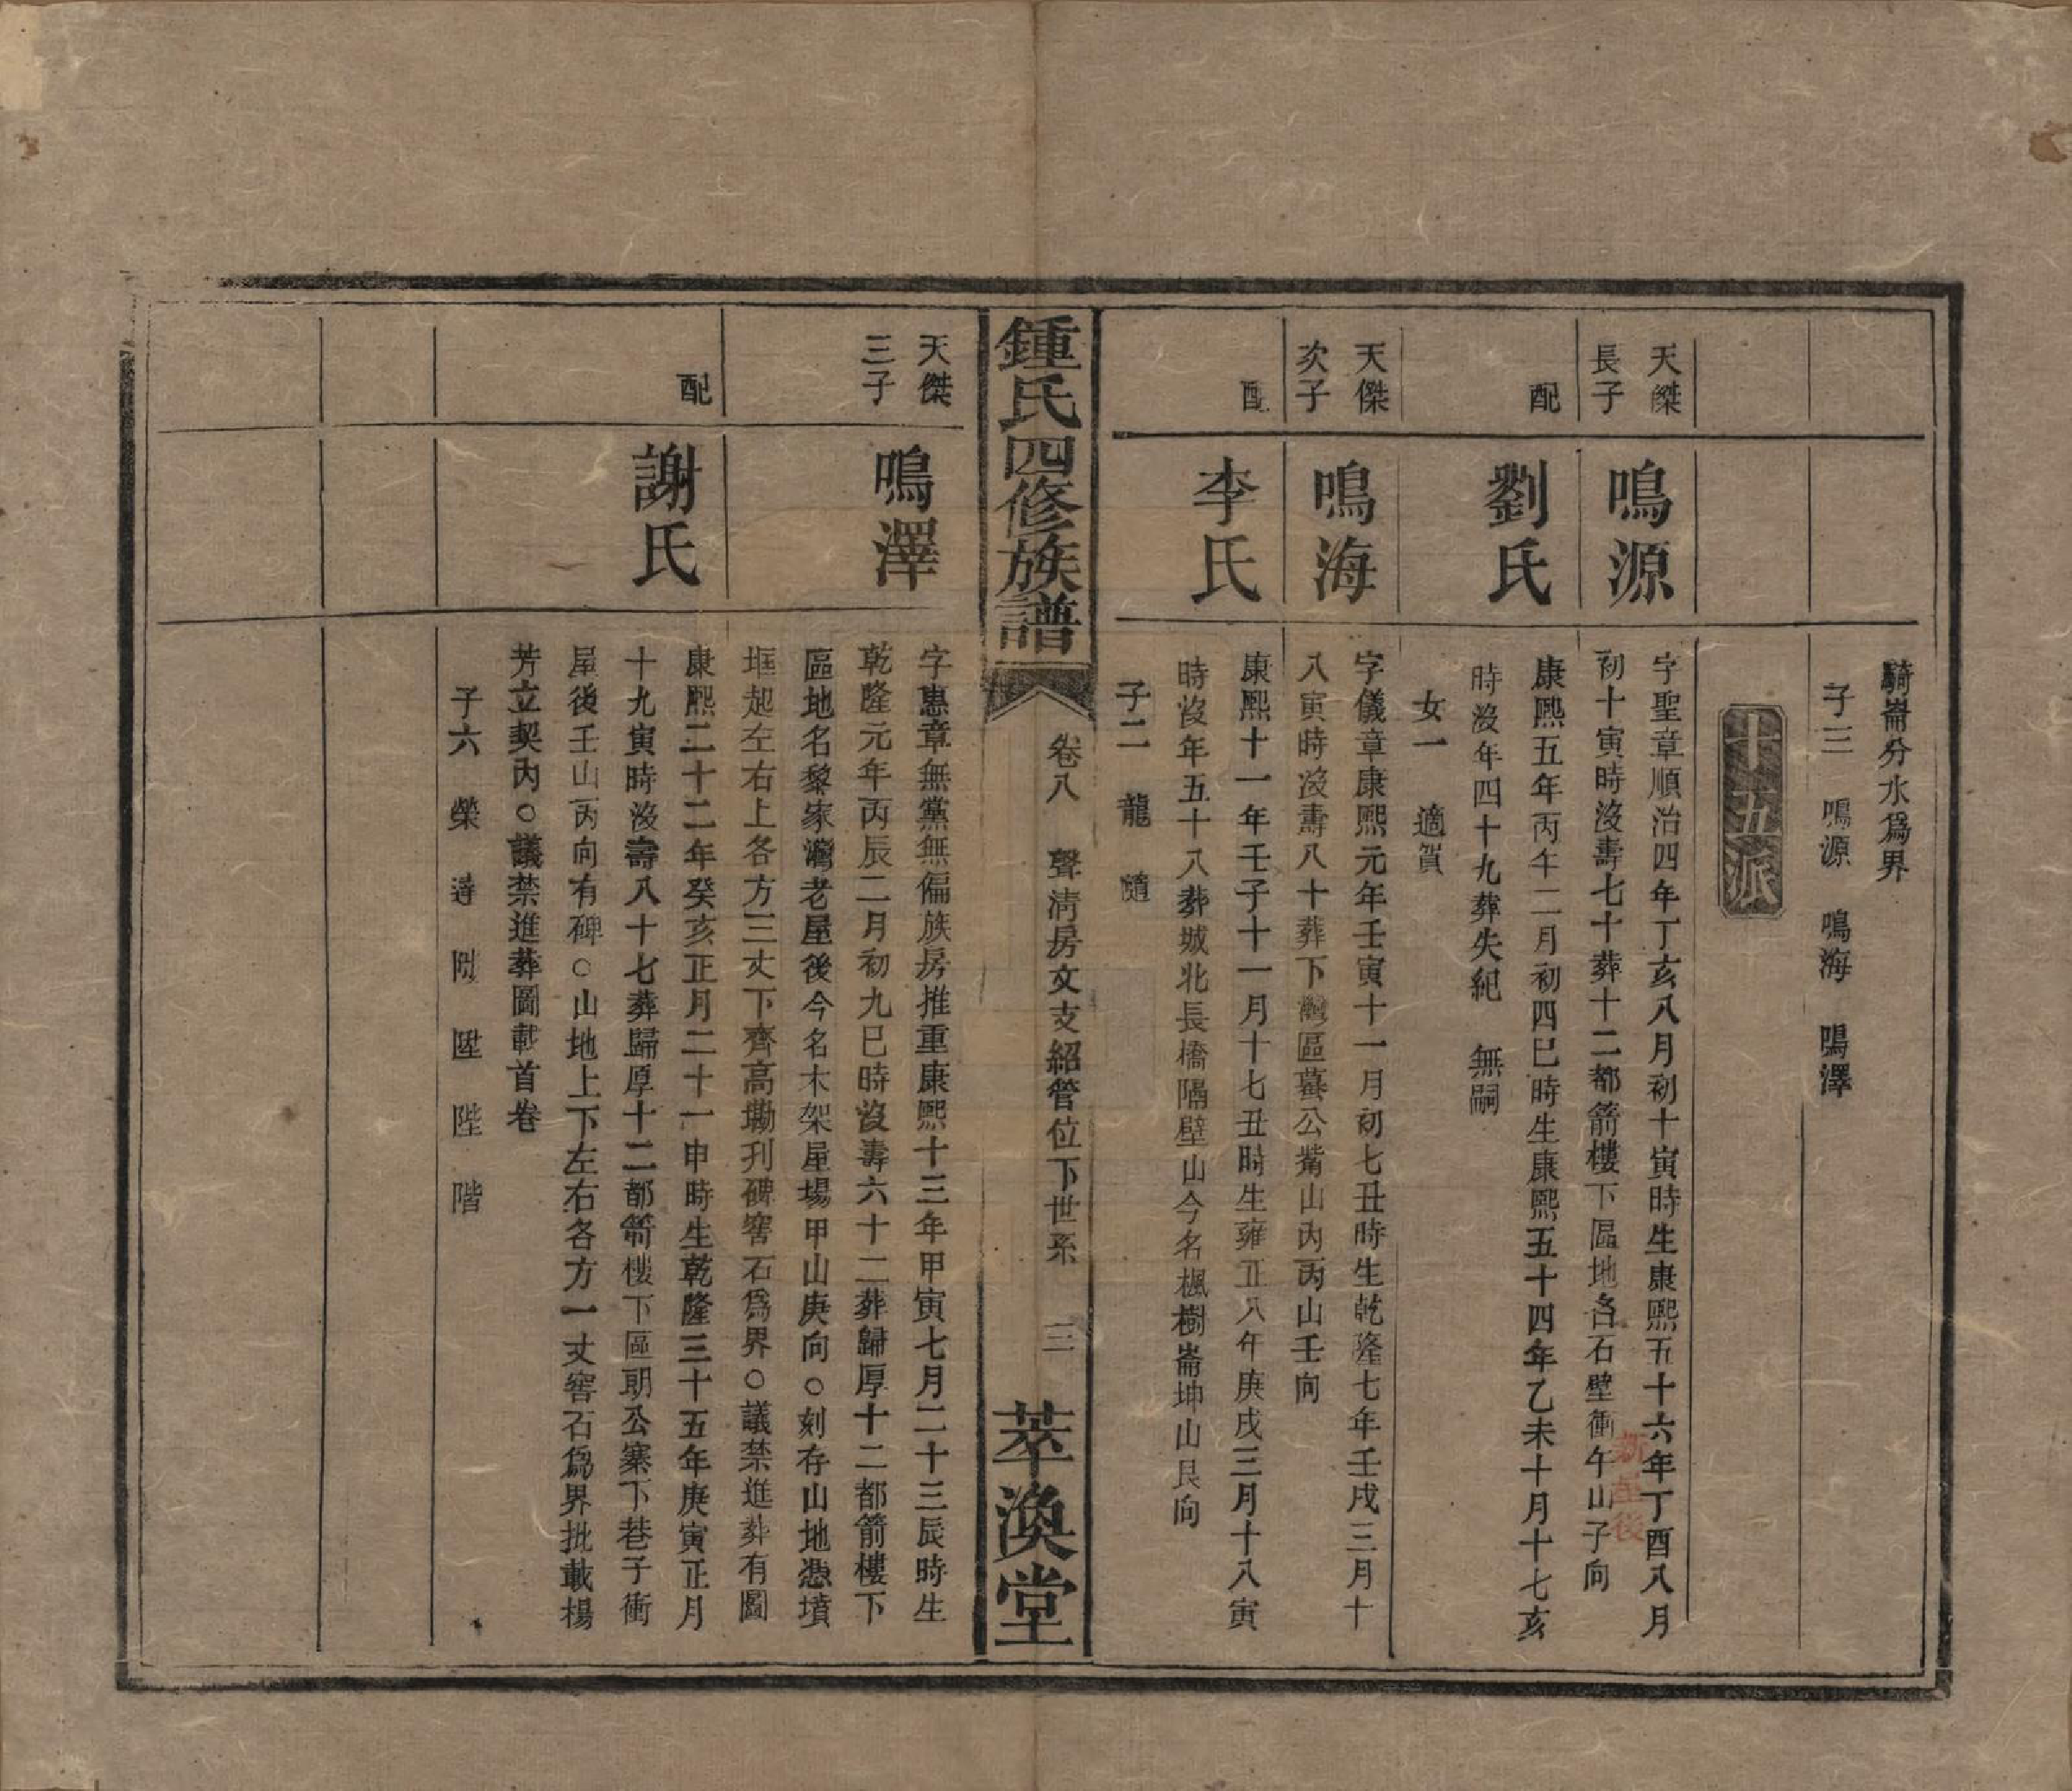 騎崙分水爲界
子三　鳴源　鳴海　鳴澤
十五派
天傑長子
鳴源
字聖章順治四年丁亥八月初十寅時生康熙五十六年丁酉八月
初十寅時沒壽七十葬十二都箭樓下區地名石壁衝午山子向
配
劉氏
康熙五年丙午二月初四巳時生康熙五十四年乙未十月十七亥
時沒年四十九葬失紀　無嗣
女一　適賀
天傑次子
鳴海
字儀章康熙元年壬寅十一月初七丑時生乾隆七年壬戌三月十
八寅時沒壽八十葬下灣區蟇公嘴山內丙山壬向
配
李氏
康熙十一年壬子十一月十七丑時生雍正八年庚戌三月十八寅
時沒年五十八葬城北長橋隔壁山今名楓樹崙坤山艮向
子二　龍　隨
鍾氏四修族譜
卷八　聲淸房文支紹管位下世系　三
萃渙堂
天傑三子
鳴澤
字惠章無黨無偏族房推重康熙十三年甲寅七月二十三辰時生
乾隆元年丙辰二月初九巳時沒壽六十二葬歸厚十二都箭樓下
區地名黎家灣老屋後今名木架屋場甲山庚向○刻存山地憑墳
堆起左右上各方三丈下齊高墈刋碑窖石爲界○議禁進葬有圖
配
謝氏
康熙二十二年癸亥正月二十一申時生乾隆三十五年庚寅正月
十九寅時沒壽八十七葬歸厚十二都箭樓下區朗公寨下巷子衝
屋後壬山丙向有碑○山地上下左右各方一丈窖石爲界批載楊
芳立契內○議禁進葬圖載首卷
子六　榮　　陞　陛　階
新 後